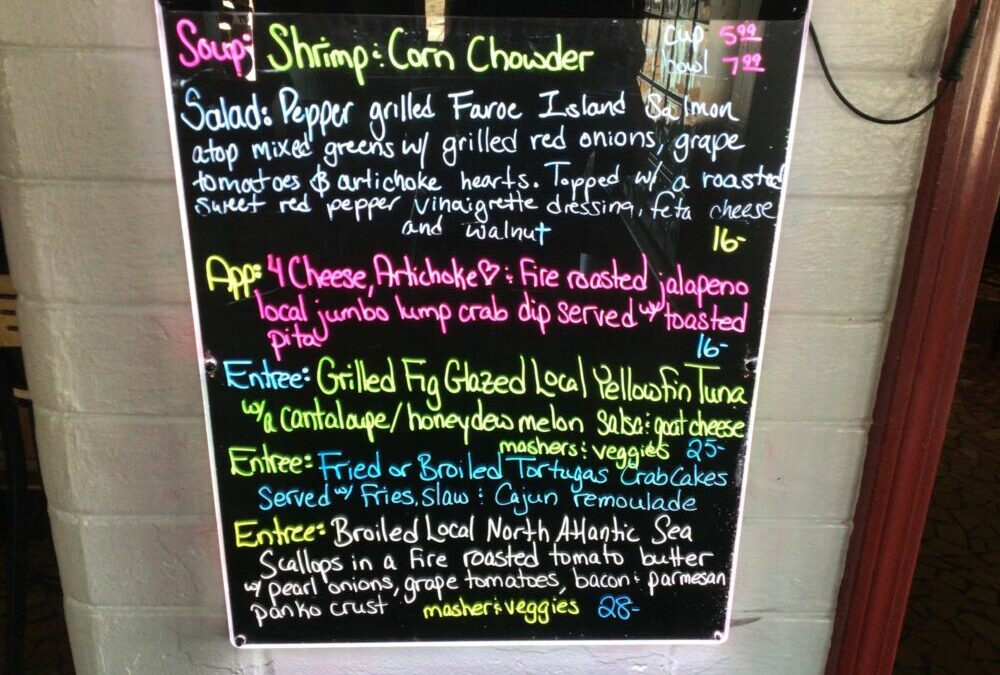 Soup: Shrimp & Corn Chowder cup 5.99
bowl 7.99
Salad: Pepper grilled Faroe Island Salmon
atop mixed greens w/ grilled red onions, grape
tomatoes & artichoke hearts. Topped w/ a roasted
sweet red pepper vinaigrette dressing, feta cheese
and walnut 16-
App: 4 Cheese, Artichoke ♡ & Fire roasted jalapeno
local jumbo lump crab dip served w/ toasted
pita 16-
Entree: Grilled Fig Glazed Local Yellowfin Tuna
w/ a cantaloupe/honeydew melon salsa & goat cheese
mashers & veggies 25-
Entree: Fried or Broiled Tortugas Crab Cakes
Served w/ Fries, slaw & Cajun remoulade
Entree: Broiled Local North Atlantic Sea
Scallops in a fire roasted tomato butter
w/ pearl onions, grape tomatoes, bacon & parmesan
panko crust masher & veggies 28-